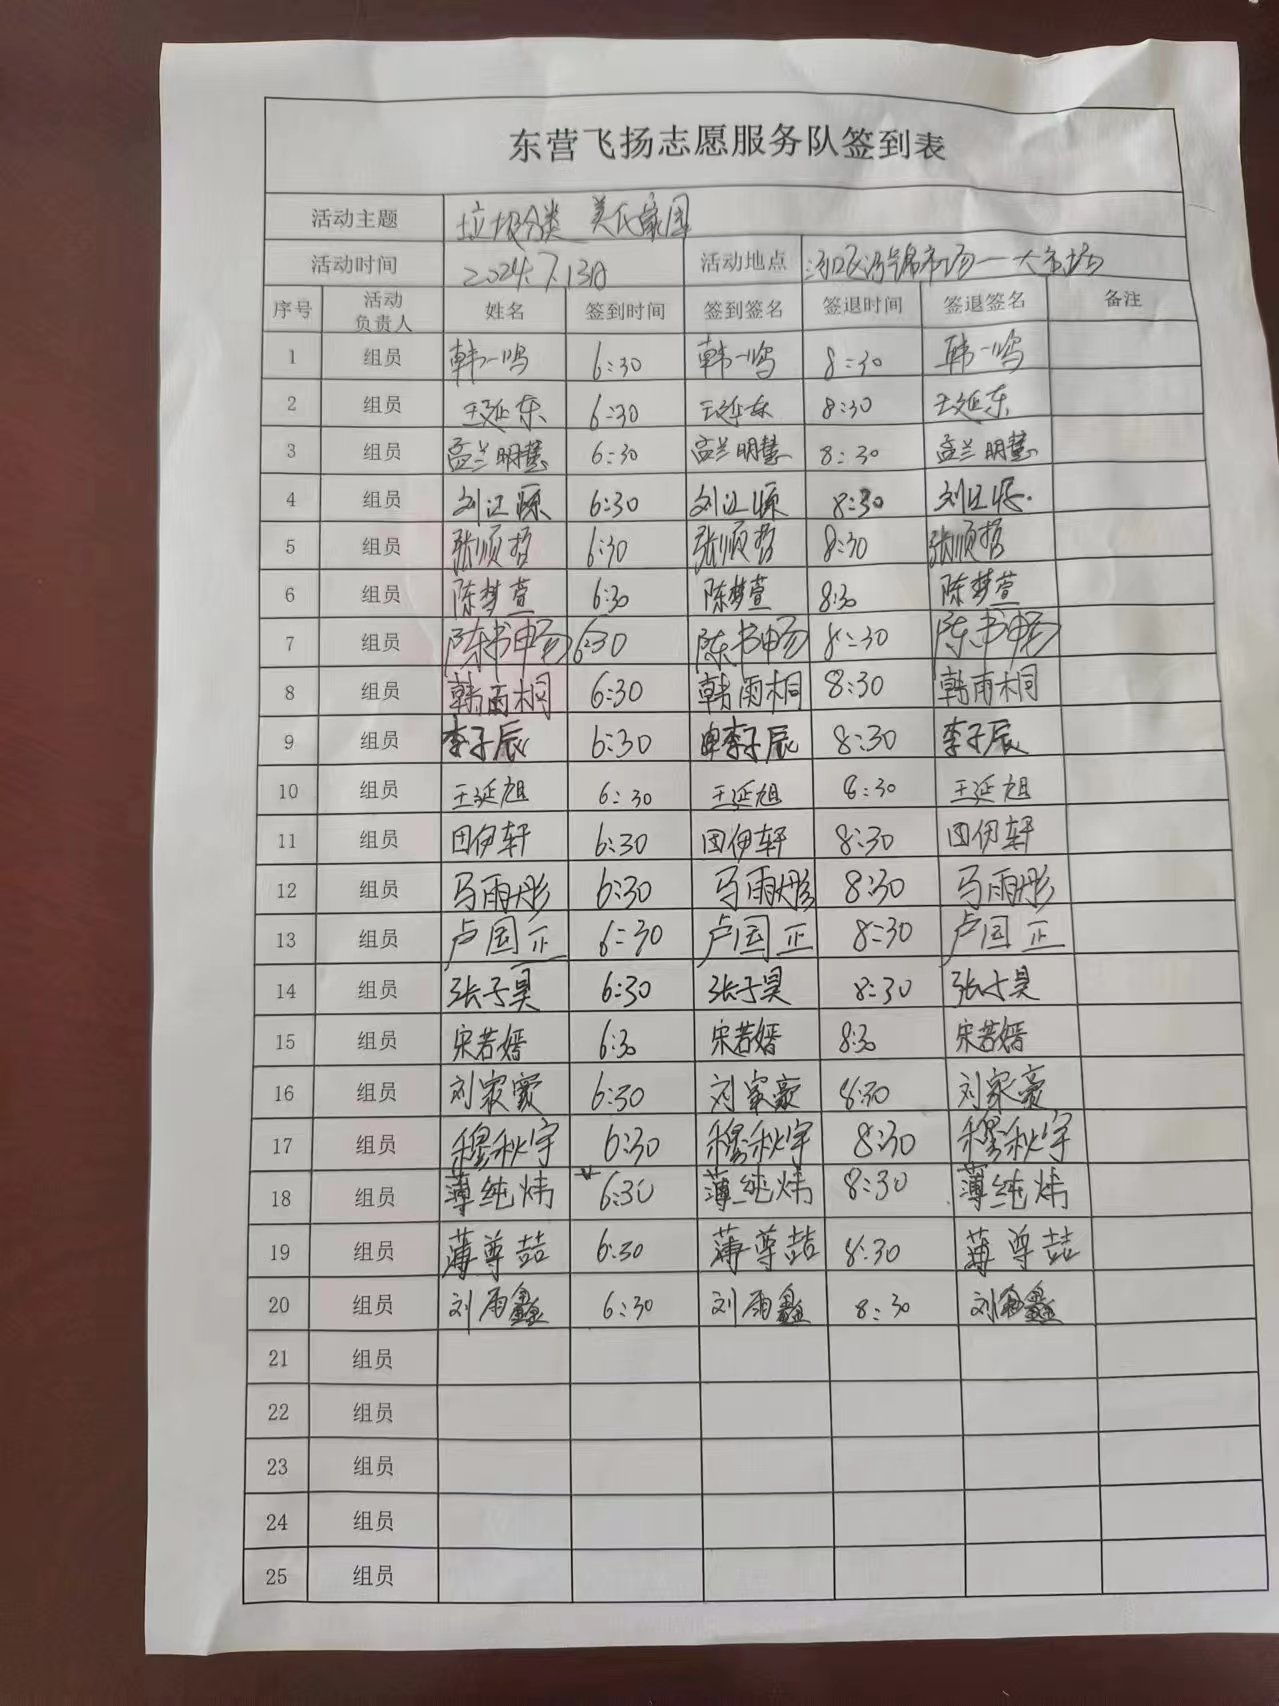 东营飞扬志愿服务队签到表
活动主题 垃圾分类 美化家园
活动时间 2024.7.13日 活动地点 河口区 市场一大市场
序号 活动负责人 姓名 签到时间 签到签名 签退时间 签退签名 备注
1 组员 韩一鸣 6:30 韩一鸣 8:30 韩一鸣
2 组员 王延东 6:30 王延东 8:30 王延东
3 组员 孟兰明慧 6:30 孟兰明慧 8:30 孟兰明慧
4 组员 刘江源 6:30 刘江源 8:30 刘江源
5 组员 张顺哲 6:30 张顺哲 8:30 张顺哲
6 组员 陈梦萱 6:30 陈梦萱 8:30 陈梦萱
7 组员 陈书畅 6:30 陈书畅 8:30 陈书畅
8 组员 韩雨桐 6:30 韩雨桐 8:30 韩雨桐
9 组员 李子辰 6:30 李子辰 8:30 李子辰
10 组员 王延旭 6:30 王延旭 8:30 王延旭
11 组员 田伊轩 6:30 田伊轩 8:30 田伊轩
12 组员 马雨彤 6:30 马雨彤 8:30 马雨彤
13 组员 卢国正 6:30 卢国正 8:30 卢国正
14 组员 张子昊 6:30 张子昊 8:30 张子昊
15 组员 宋若嫣 6:30 宋若嫣 8:30 宋若嫣
16 组员 刘家豪 6:30 刘家豪 8:30 刘家豪
17 组员 穆秋宇 6:30 穆秋宇 8:30 穆秋宇
18 组员 薄纯炜 6:30 薄纯炜 8:30 薄纯炜
19 组员 薄尊喆 6:30 薄尊喆 8:30 薄尊喆
20 组员 刘雨鑫 6:30 刘雨鑫 8:30 刘雨鑫
21 组员
22 组员
23 组员
24 组员
25 组员